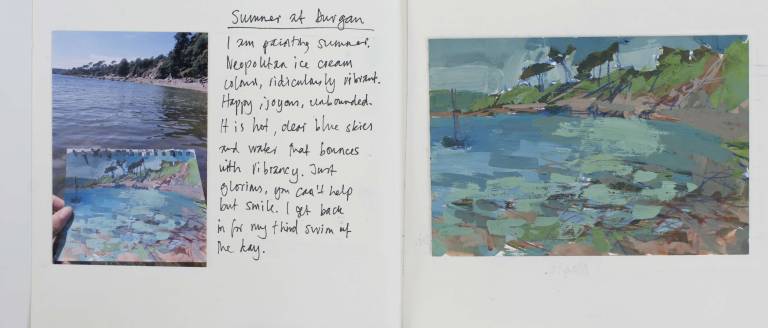 Summer at Durgan
I am painting summer.
Neopolitan ice cream
colours, ridiculously vibrant.
Happy, joyous, unbounded.
It is hot, clear blue skies
and water that bounces
with vibrancy. Just
glorious, you can't help
but smile. I get back
in for my third swim of
the day.